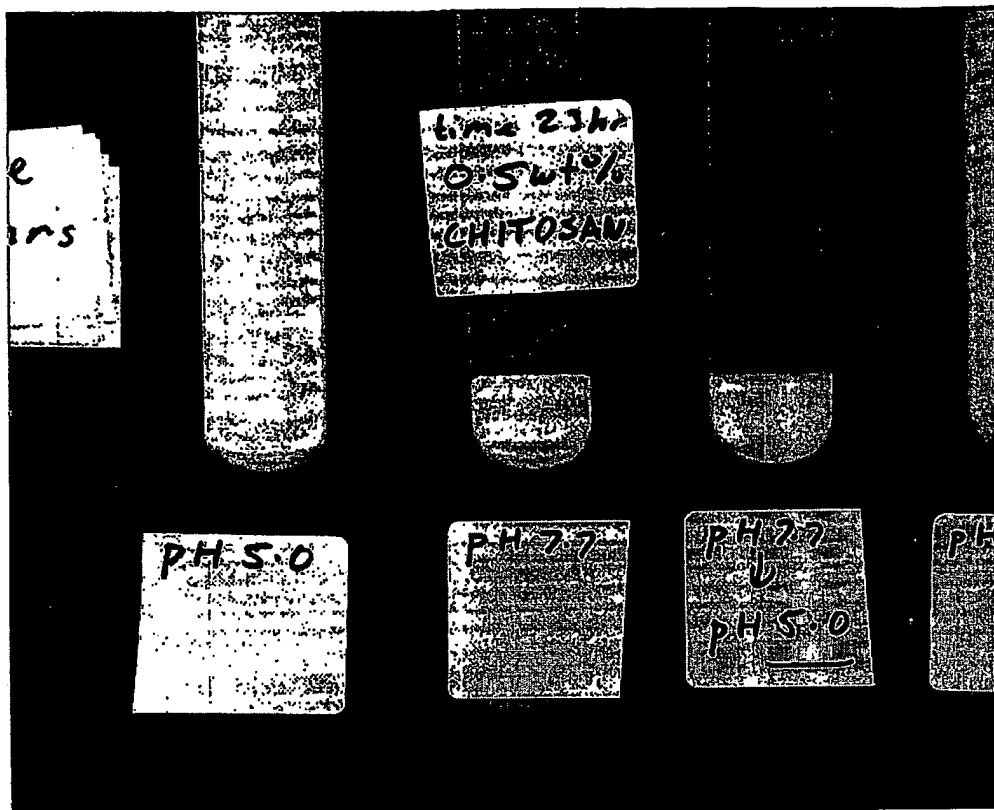 e
rs
time 23hr
0.5wt%
CHITOSAN
pH 5.0
pH 7.7
pH 7.7
↓
pH 5.0
pH